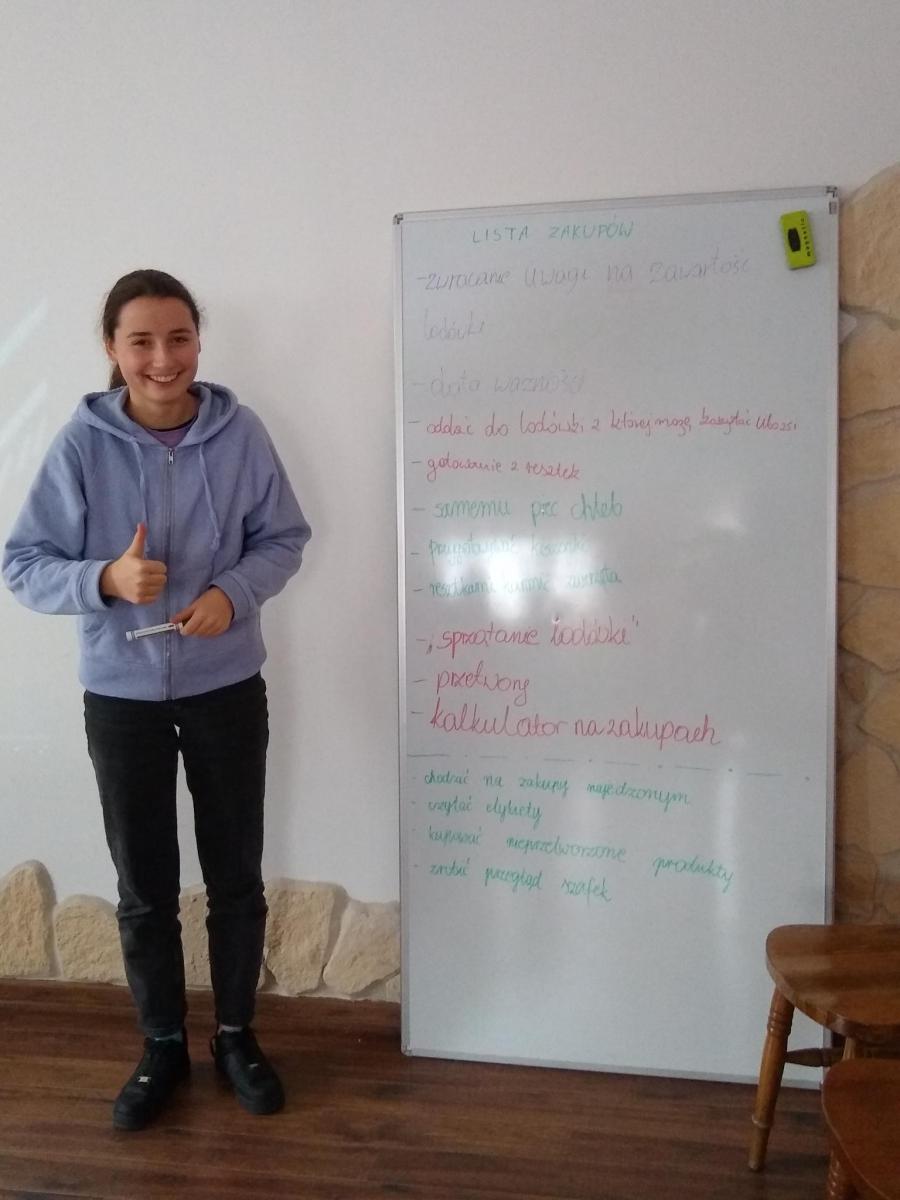 LISTA ZAKUPÓW
- zwracanie uwagi na zawartość
lodówki
- data ważności
- oddać do lodówki z której mogą korzystać ubożsi
- gotowanie z resztek
- samemu piec chleb
- przygotować kiszonki
- resztkami karmić zwierzęta
- „sprzątanie lodówki"
- przetwory
- kalkulator na zakupach
- chodzić na zakupy najedzonym
- czytać etykiety
- kupować nieprzetworzone produkty
- zrobić przegląd szafek